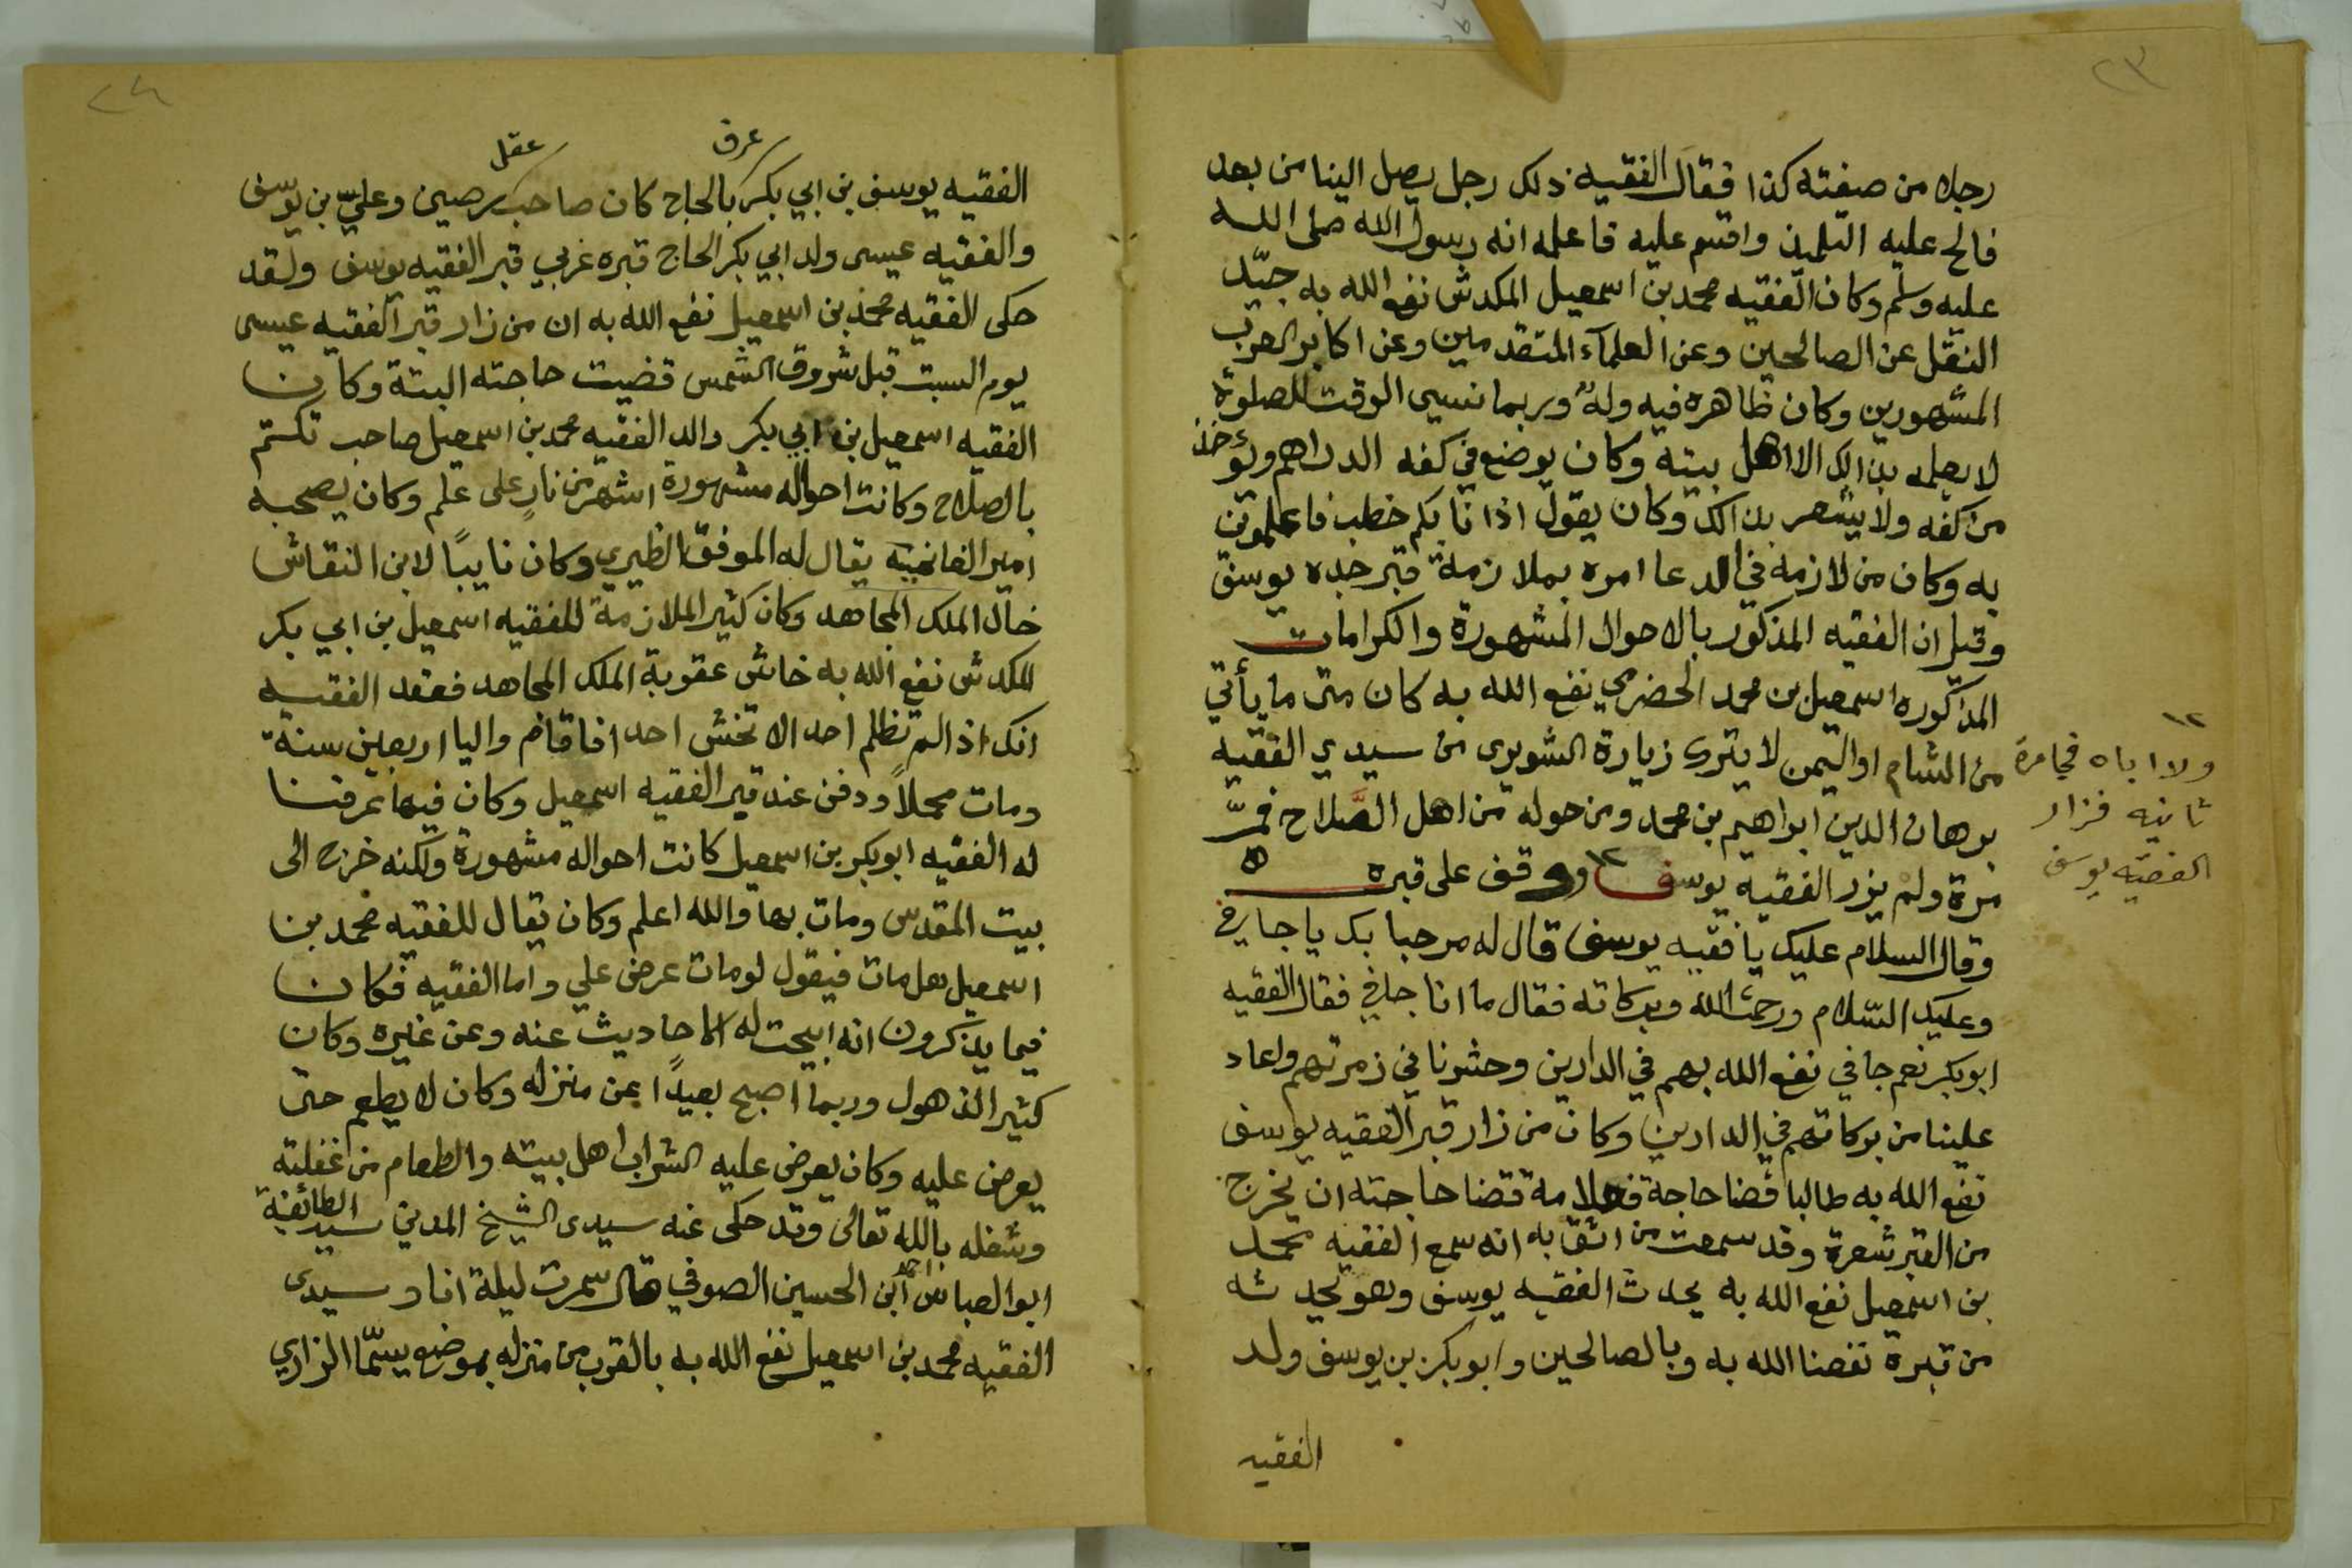 ٢٣
رجلا من صفته كذا فقال الفقيه ذلك رجل يصل الينا من بعد
فالح عليه التلميذ واقسم عليه فاعلمه انه رسول الله صلى الله
عليه وسلم وكان الفقيه محمد بن اسمعيل المكدش نفع الله به جيّد
النقل عن الصالحين وعن العلمآء المتقدمين وعن اكابر العرب
المشهورين وكان ظاهره فيه وله وربما نسي الوقت للصلوة
لا يعلمه بذالك الا اهل بيته وكان يوضع في كفه الدراهم وتؤخذ
من كفه ولا يشعر بذالك وكان يقول اذا نابكم خطب فاعلموني
به وكان من لازمه في الدعا امره بملازمة قبر جده يوسف
وقيل ان الفقيه المذكور بالاحوال المشهورة والكرامات
المذكوره اسمعيل بن محمد الحضرمي نفع الله به كان متى ما يأتي
من الشام او اليمن لا يترك زيارة الشويرى من سيدي الفقيه
برهان الدين ابراهيم بن محمد ومن حوله من اهل الصّلاح فمرّ
مرة ولم يزر الفقيه يوسف ووقف على قبره
ولا اباه فجا مرة
ثانيه فزار
الفقيه يوسف
وقال السلام عليك يا فقيه يوسف قال له مرحبا بك يا جافي
وعليك السّلام ورحمة الله وبركاته فقال ما انا جافي فقال الفقيه
ابو بكر نعم جافي نفع الله بهم في الدارين وحشرنا في زمرتهم واعاد
علينا من بركاتهم في الدارين وكان من زار قبر الفقيه يوسف
نفع الله به طالبا قضا حاجة فعلامة قضا حاجته ان يخرج
من القبر شعرة وقد سمعت من اثق به انه سمع الفقيه محمد
بن اسمعيل نفع الله به يحدث الفقيه يوسف وهو يحدثه
من قبره نفعنا الله به وبالصالحين وابو بكر بن يوسف ولد
الفقيه
٢٤
الفقيه يوسف بن ابي بكر عرف بالحاج كان صاحب عقل رصين وعليّ بن يوسف
والفقيه عيسى ولد ابي بكر الحاج قبره غربي قبر الفقيه يوسف ولقد
حكى الفقيه محمد بن اسمعيل نفع الله به ان من زار قبر الفقيه عيسى
يوم السبت قبل شروق الشمس قضيت حاجته البتة وكان
الفقيه اسمعيل بن ابي بكر والد الفقيه محمد بن اسمعيل صاحب تكتم
بالصلاح وكانت احواله مشهورة اشهر من نارٍ على علم وكان يصحبه
امير الغانميه يقال له الموفق الظيري وكان نايبًا لابن النقاش
خال الملك المجاهد وكان كثير الملازمة للفقيه اسمعيل بن ابي بكر
المكدش نفع الله به خاش عقوبة الملك المجاهد فعقد الفقيه
انك اذا لم تظلم احد الا تخش احد افاقام واليا اربعين سنة
ومات محلاً ودفن عند قبر الفقيه اسمعيل وكان فيها عرفنا
له الفقيه ابو بكر بن اسمعيل كانت احواله مشهورة ولكنه خرج الى
بيت المقدس ومات بها والله اعلم وكان يقال للفقيه محمد بن
اسمعيل هل مات فيقول لو مات عرض علي واما الفقيه فكان
فيما يذكرون انه ابيحت له الاحاديث عنه وعن غيره وكان
كثير الذهول وربما اصبح بعيدًا عن منزله وكان لا يطعم حتى
يعرض عليه وكان يعرض عليه الشراب اهل بيته والطعام من غفلته
وشغله بالله تعالى وقد حكى عنه سيدى الشيخ المدني سيد الطائفة
ابو العباس احمد ابن الحسين الصوفي قال سمرت ليلة انا وسيدى
الفقيه محمد بن اسمعيل نفع الله به بالقرب من منزله بموضع يسمّا الزاري